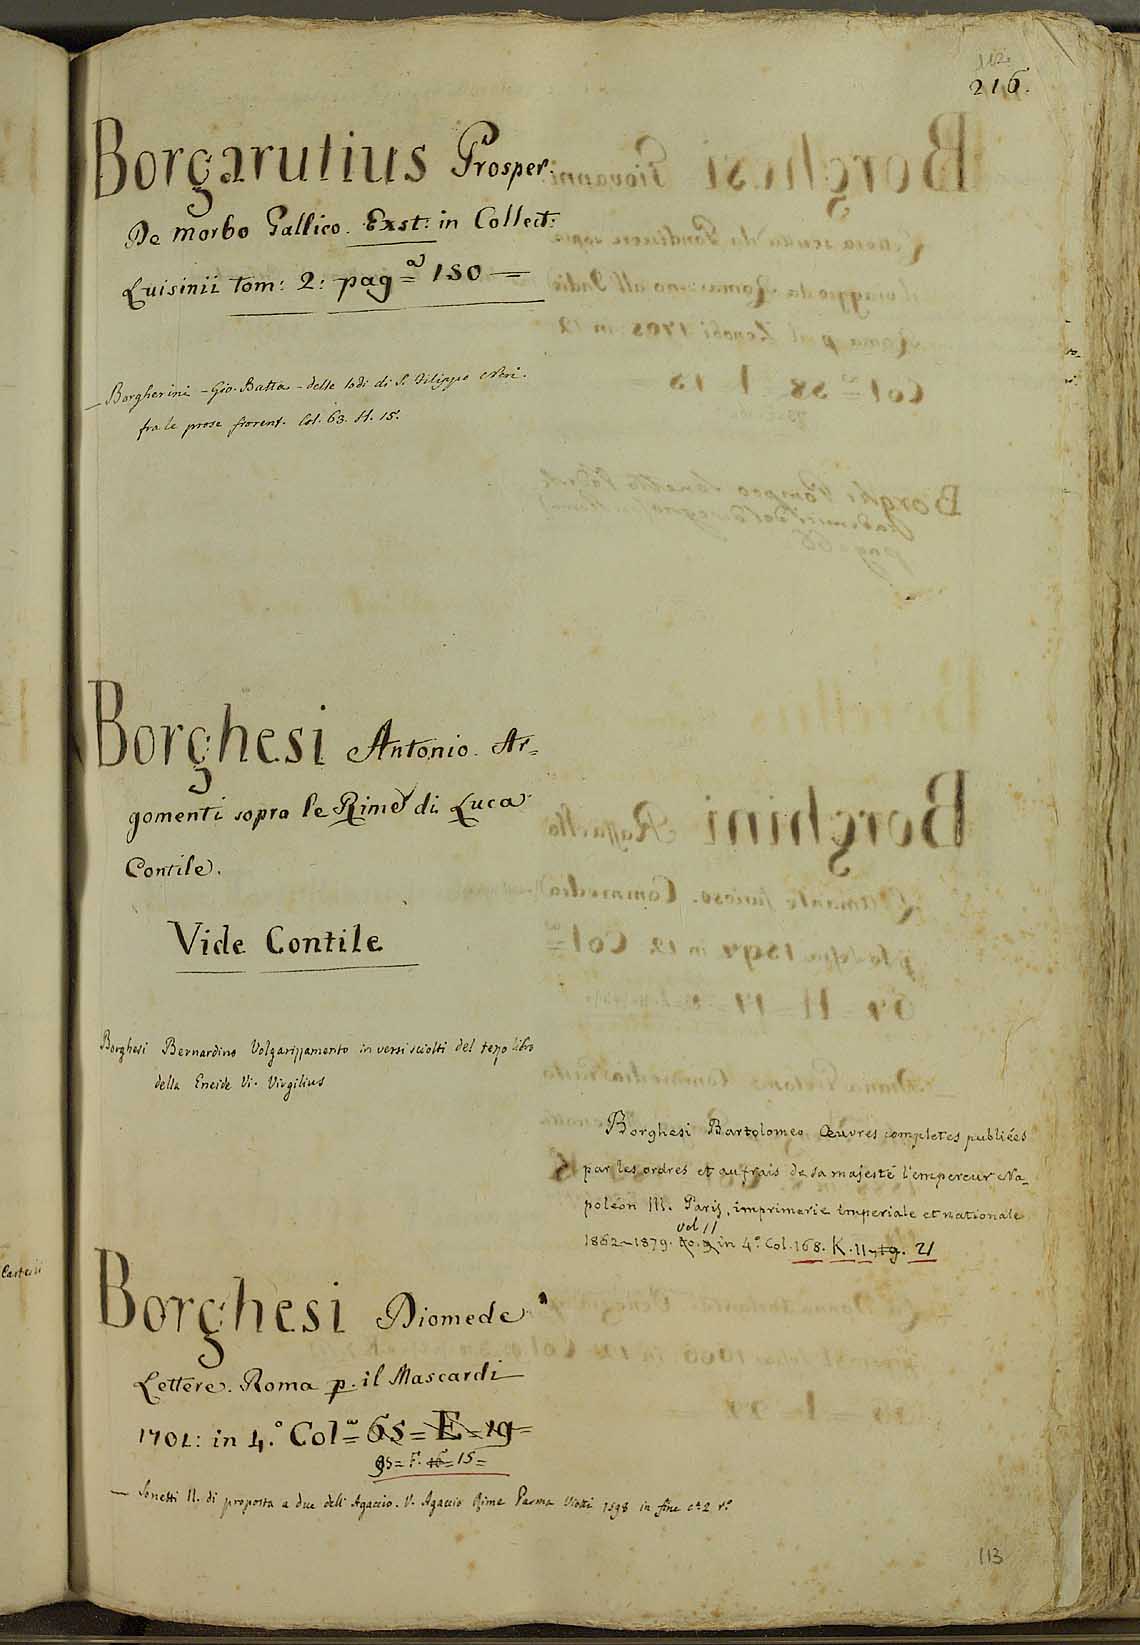 112.
216.
Borgarutius Prosper.
De morbo Gallico. Exst: in Collect:
Luisinii tom: 2: pag=a 150 =
Borgherini - Gio. Batta - delle lodi di S. Filippo Neri.
fra le prose fiorent. Col. 63. H. 15.
Borghesi Antonio. Ar=
gomenti sopra le Rime di Luca
Contile.
Vide Contile
Borghesi Bernardino Volgarizzamento in versi sciolti del terzo libro
della Eneide Vi. Virgilius
Borghesi Bartolomeo Œuvres completes publiées
par les ordres et aufrais de sa majesté l'empereur Na-
poléon III. Paris, imprimerie imperiale et nationale
vol 11
1862-1879. in 4.º Col. 168. K. 11-19. 21
Castelli
Borghesi Diomede
Lettere. Roma p. il Mascardi
1701: in 4.º Col=a 65 = E = 19=
93= F. 16= 15=
— Sonetti II. di proposta a due dell' Agaccio. V. Agaccio Rime Parma Viotti 1598 in fine c.ta 2 r.º
113